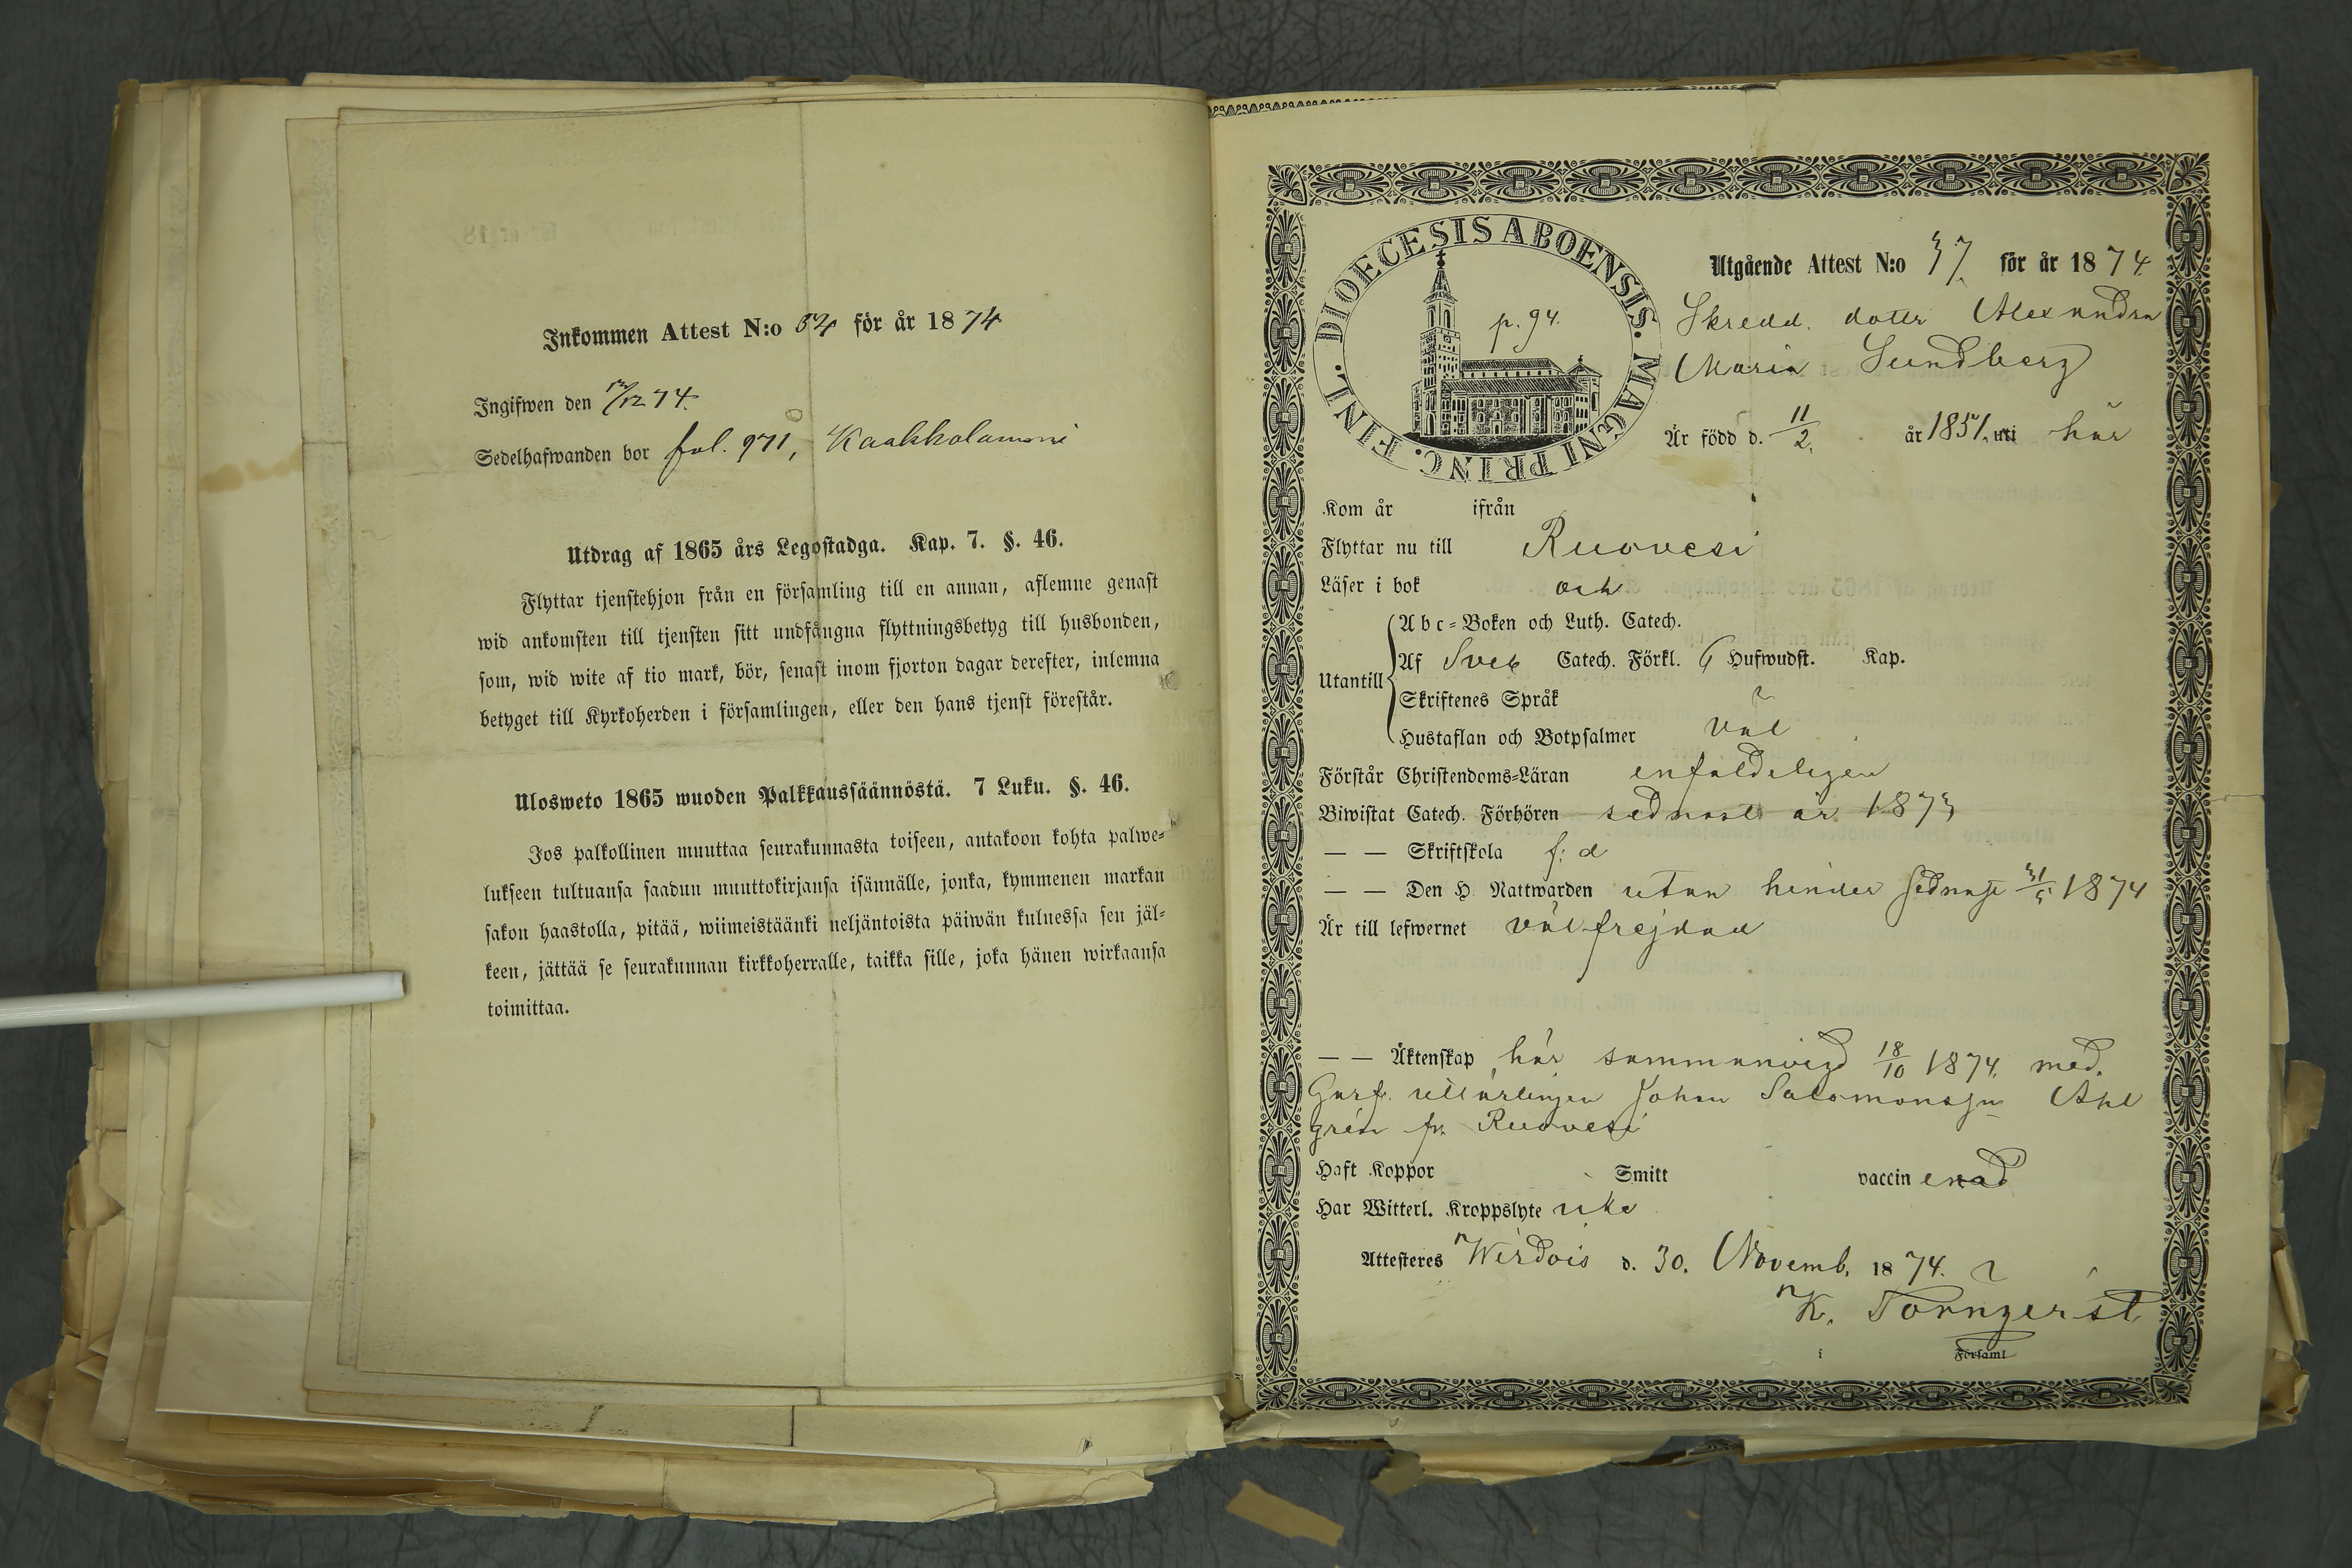 Inkommen Attest N:o 54 för år 1874
Ingifwen den /12 74.
Sedelhafwanden bor fol. 971, Kaakkolammi
Utdrag af 1865 års Legostadga. Kap. 7. §. 46.
Flyttar tjenstehjon från en församling till en annan, aflemne genast
wid ankomsten till tjensten sitt undfångna flyttningsbetyg till husbonden,
som, wid wite af tio mark, bör, senast inom fjorton dagar derefter, inlemna
betyget till Kyrkoherden i församlingen, eller den hans tjenst förestår.
Ulosweto 1865 wuoden Palkkaussäännöstä. 7 Luku. §. 46.
Jos palkollinen muuttaa seurakunnasta toiseen, antakoon kohta palwe-
lukseen tultuansa saadun muuttokirjansa isännälle, jonka, kymmenen markan
sakon haastolla, pitää, wiimeistäänki neljäntoista päiwän kuluessa sen jäl-
keen, jättää se seurakunnan kirkkoherralle, taikka sille, joka hänen wirkaansa
toimittaa.
DIOECESIS ABOENSIS. MAGNI PRINC. FINL.
p. 94.
Utgående Attest N:o 37. för år 1874
Skredd. dottr Alexandra
Maria Sundberg
Är född d. 11/2. år 1851. uti här
Kom år ifrån
Flyttar nu till Ruovesi
Läser i bok och
Utantill
Abc-Boken och Luth. Catech.
Af Sveb Catech. Förkl. 6 Hufwudst. Kap.
Skriftenes Språk
Hustaflan och Botpsalmer väl
Förstår Christendoms-Läran enfaldeligen
Biwistat Catech. Förhören sednast år 1873
— — Skriftskola f: d
— — Den H. Nattwarden utan hinder sednast 31/5 1874
Är till lefwernet välfrejdad
— — Äktenskap här sammanvigd 18/10 1874. med
Garf. Johan Salomonsson Ahl
grén fr. Ruovesi
Haft Koppor Smitt vaccinerad
Har Witterl. Kroppslyte icke
Attesteres Wirdois d. 30. Novemb. 1874.
K. Törnqvist
i Församl